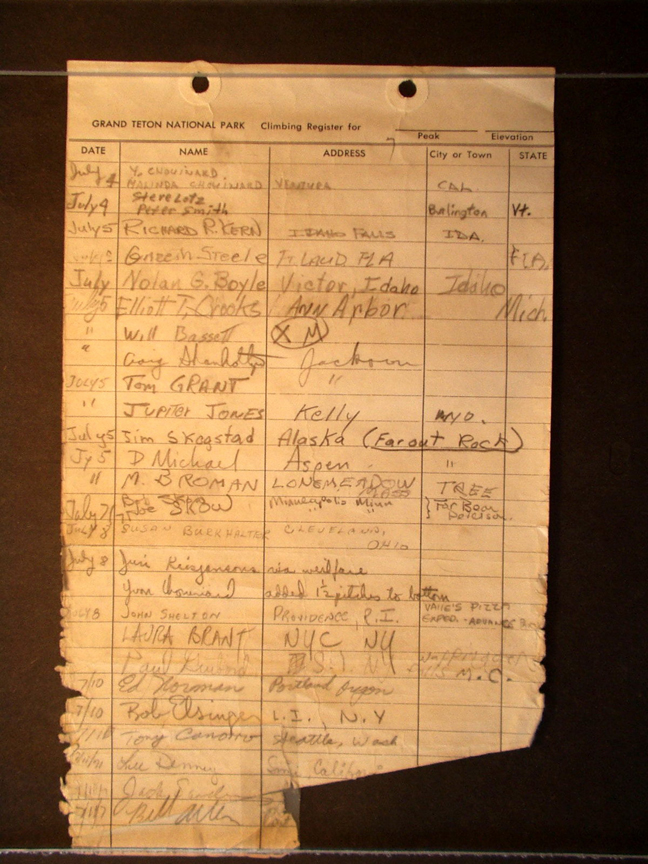 GRAND TETON NATIONAL PARK Climbing Register for
Peak Elevation
DATE NAME ADDRESS City or Town STATE
July 4 Y. CHOUINARD
MALINDA CHOUINARD VENTURA CAL.
July 4 Steve Lotz
Peter Smith Burlington Vt.
July 5 RICHARD R. KERN IDAHO FALLS IDA.
Steele FLA FLA.
July Nolan G. Boyle Victor, Idaho Idaho
July 5 Elliott T. Crooks Ann Arbor Mich.
" Will Bassett X M
" Jackson
JULY 5 TOM GRANT "
" JUPITER JONES Kelly WYO.
July 5 Jim Skogstad Alaska (Far out Rock)
Jy 5 D Michael Aspen "
" M. BROMAN LONGMEADOW MASS TREE
Bob Skow Minneapolis Minn
July 7 Joe SKOW " " Far Boar
JULY 8 SUSAN BURKHALTER CLEVELAND,
OHIO
July 8 Juri via welfare
Yvon Chouinard added 1½ pitches to bottom
JULY 8 JOHN SHELTON PROVIDENCE, R.I. PIZZA
EXPED. ADVANCE
LAURA BRANT NYC NY
Paul S.I. NY
M.C.
7/10 Ed Norman Portland Oregon
7/10 Bob Elsinger L.I., N.Y
Tony Seattle, Wash
Denny California
Jack
Bill Allen